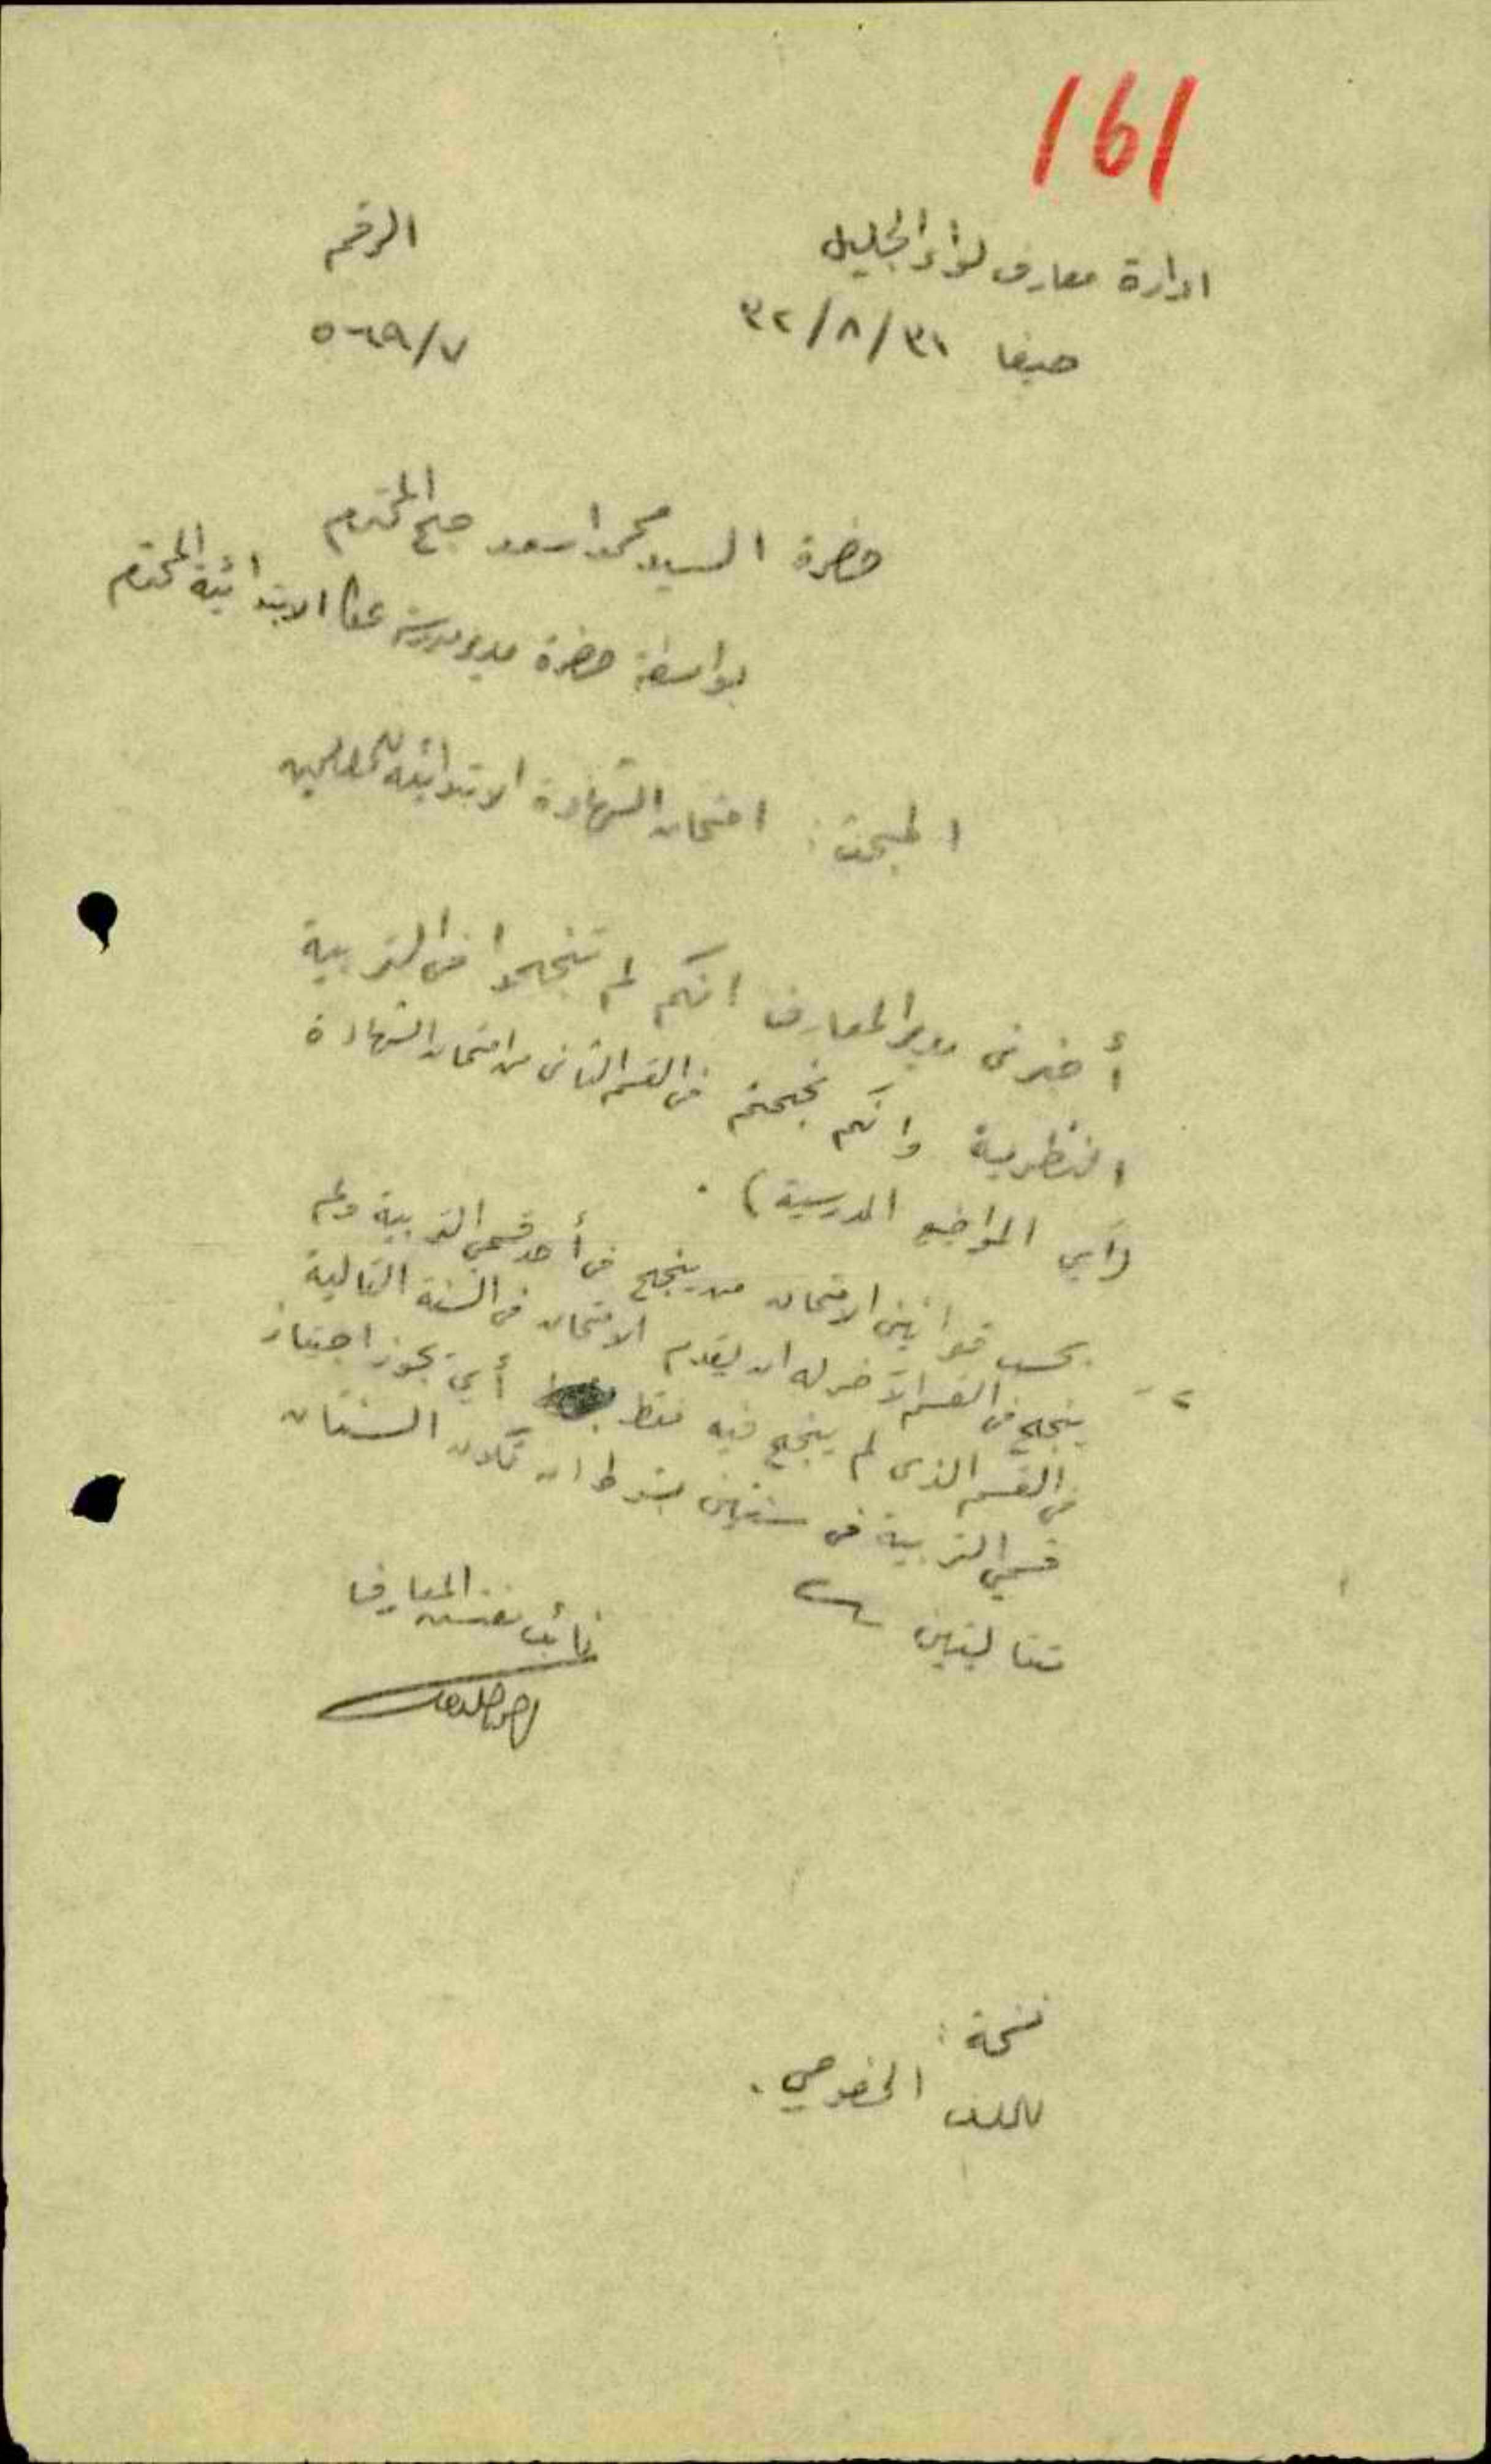 161
ادارة معارف لواء الجليل
الرقم
حيفا ٣١/٨/٣٢
٧/٥٦٩
حضرة السيد محمد اسعد المحترم
بواسطة حضرة مدير مدرسة عكا الابتدائية المحترم
المبحث: امتحان الشهادة الابتدائية للمعلمين
أخبرني مدير المعارف انكم لم تنجحوا في التربية
النظرية وانكم نجحتم في القسم الثاني من امتحان الشهادة
(أي المواضيع المدرسية).
٢- بحسب قوانين الامتحان من ينجح في أحد قسمي التربية ولم
ينجح في القسم الآخر له ان يقدم الامتحان في السنة التالية
في القسم الذي لم ينجح فيه فقط أي يجوز اجتياز
قسمي التربية في سنتين بشرط ان تكون السنتان
متتاليتين
نائب مفتش المعارف
نسخة:
للملف الخصوصي.